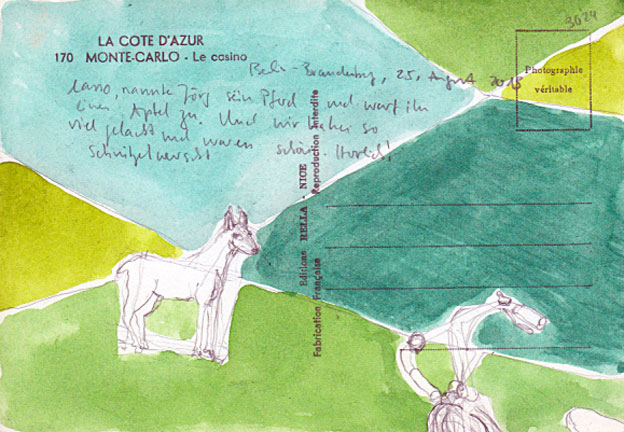 3024
LA COTE D'AZUR
170 MONTE-CARLO - Le casino
Photographie
véritable
Brandenburg, 25. August 2018
Lasso, nannte Jörg sein Pferd und warf ihm
einen Apfel zu. Und wir haben so
viel gelacht und waren schön. Herrlich!
Editions RELLA - NICE
Reproduction Interdite
Fabrication Française